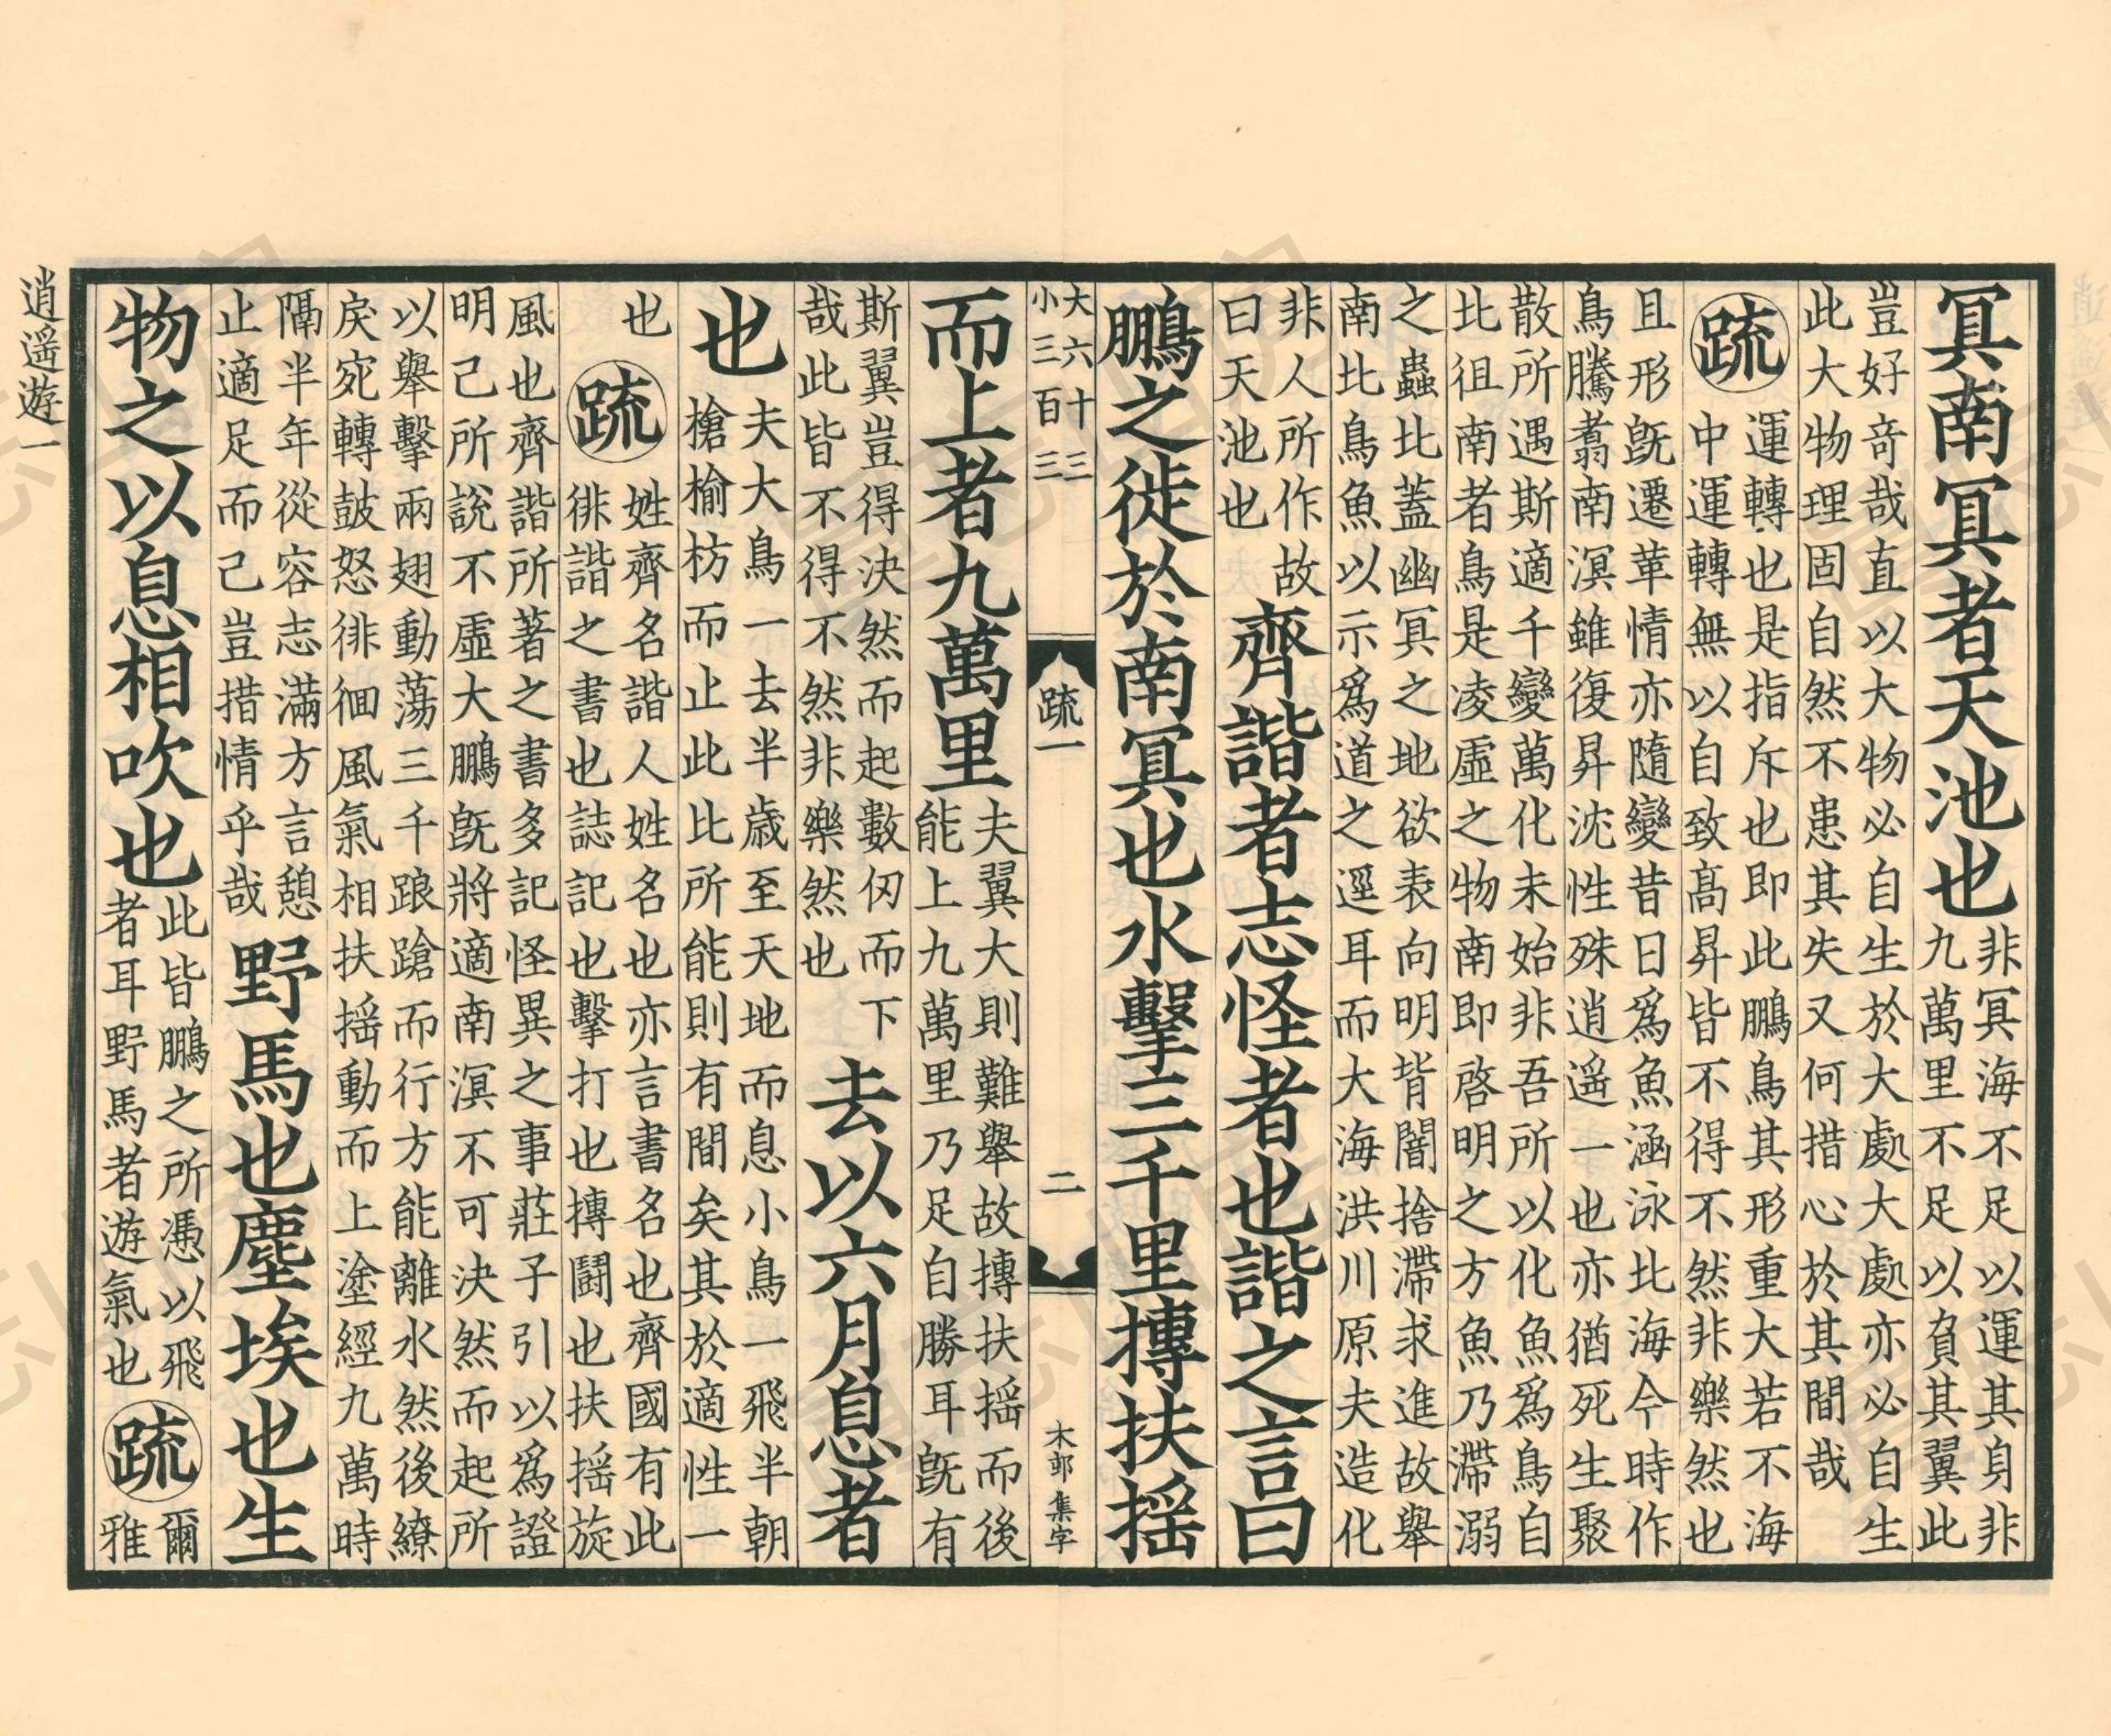 冥南冥者天池也
非冥海不足以運其身非
九萬里不足以負其翼此
豈好竒哉直以大物必自生於大處大處亦必自生
此大物理固自然不患其失又何措心於其間哉
疏
運轉也是指斥也即此鵬鳥其形重大若不海
中運轉無以自致髙昇皆不得不然非樂然也
且形旣遷革情亦隨變昔日爲魚涵泳北海今時作
鳥騰翥南溟雖復昇沈性殊逍遥一也亦猶死生聚
散所遇斯適千變萬化未始非吾所以化魚爲鳥自
北徂南者鳥是凌虛之物南即啓明之方魚乃滯溺
之蟲北蓋幽冥之地欲表向明背闇捨滯求進故舉
南北鳥魚以示爲道之逕耳而大海洪川原夫造化
非人所作故
曰天池也
齊諧者志怪者也諧之言曰
鵬之徙於南冥也水擊三千里摶扶摇
大六十三
小三百三三
疏一
二
木郵集字
而上者九萬里
夫翼大則難舉故摶扶摇而後
能上九萬里乃足自勝耳旣有
斯翼豈得決然而起數仞而下
哉此皆不得不然非樂然也
去以六月息者
也
夫大鳥一去半歲至天地而息小鳥一飛半朝
槍榆枋而止此比所能則有間矣其於適性一
也
疏
姓齊名諧人姓名也亦言書名也齊國有此
徘諧之書也誌記也擊打也摶鬭也扶摇旋
風也齊諧所著之書多記怪異之事莊子引以爲證
明己所說不虛大鵬旣將適南溟不可決然而起所
以舉擊兩翅動蕩三千踉蹌而行方能離水然後繚
戾宛轉鼓怒徘徊風氣相扶摇動而上塗經九萬時
隔半年從容志滿方言憩
止適足而己豈措情乎哉
野馬也塵埃也生
物之以息相吹也
此皆鵬之所憑以飛
者耳野馬者遊氣也
疏
爾
雅
逍遥遊一